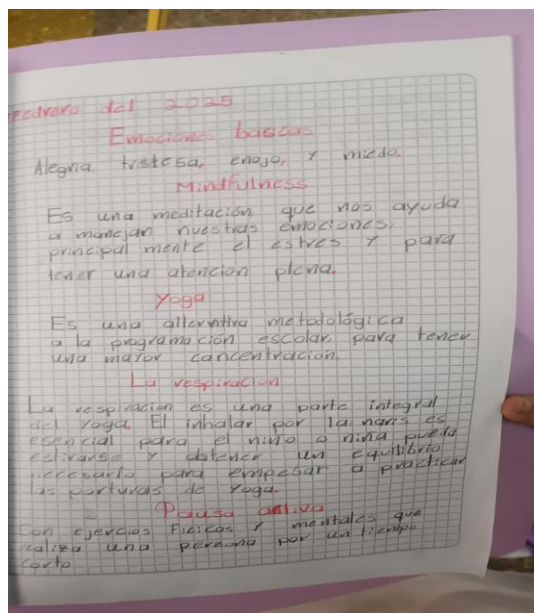 Fedrero del 2025
Emociones basicas
Alegria tristesa, enojo, y miedo.
Mindfulness
Es una meditación que nos ayuda
a manejan nuestras emociones,
principal mente el estres y para
tener una atencion plena.
Yoga
Es una alterntiva metodológica
a la programación escolar para tener
una mayor cancentración.
La respiracion
La respiracion es una parte integral
del yoga. El inhalar por la naris es
esencial para el niño o niña pueda
estirarse y obtener un equilibrio
necesario para empesar a practicar
las porturas de yoga.
Pausa activa
Son ejercios Ficicos y mentales que
realiza una persona por un tiempo
corto